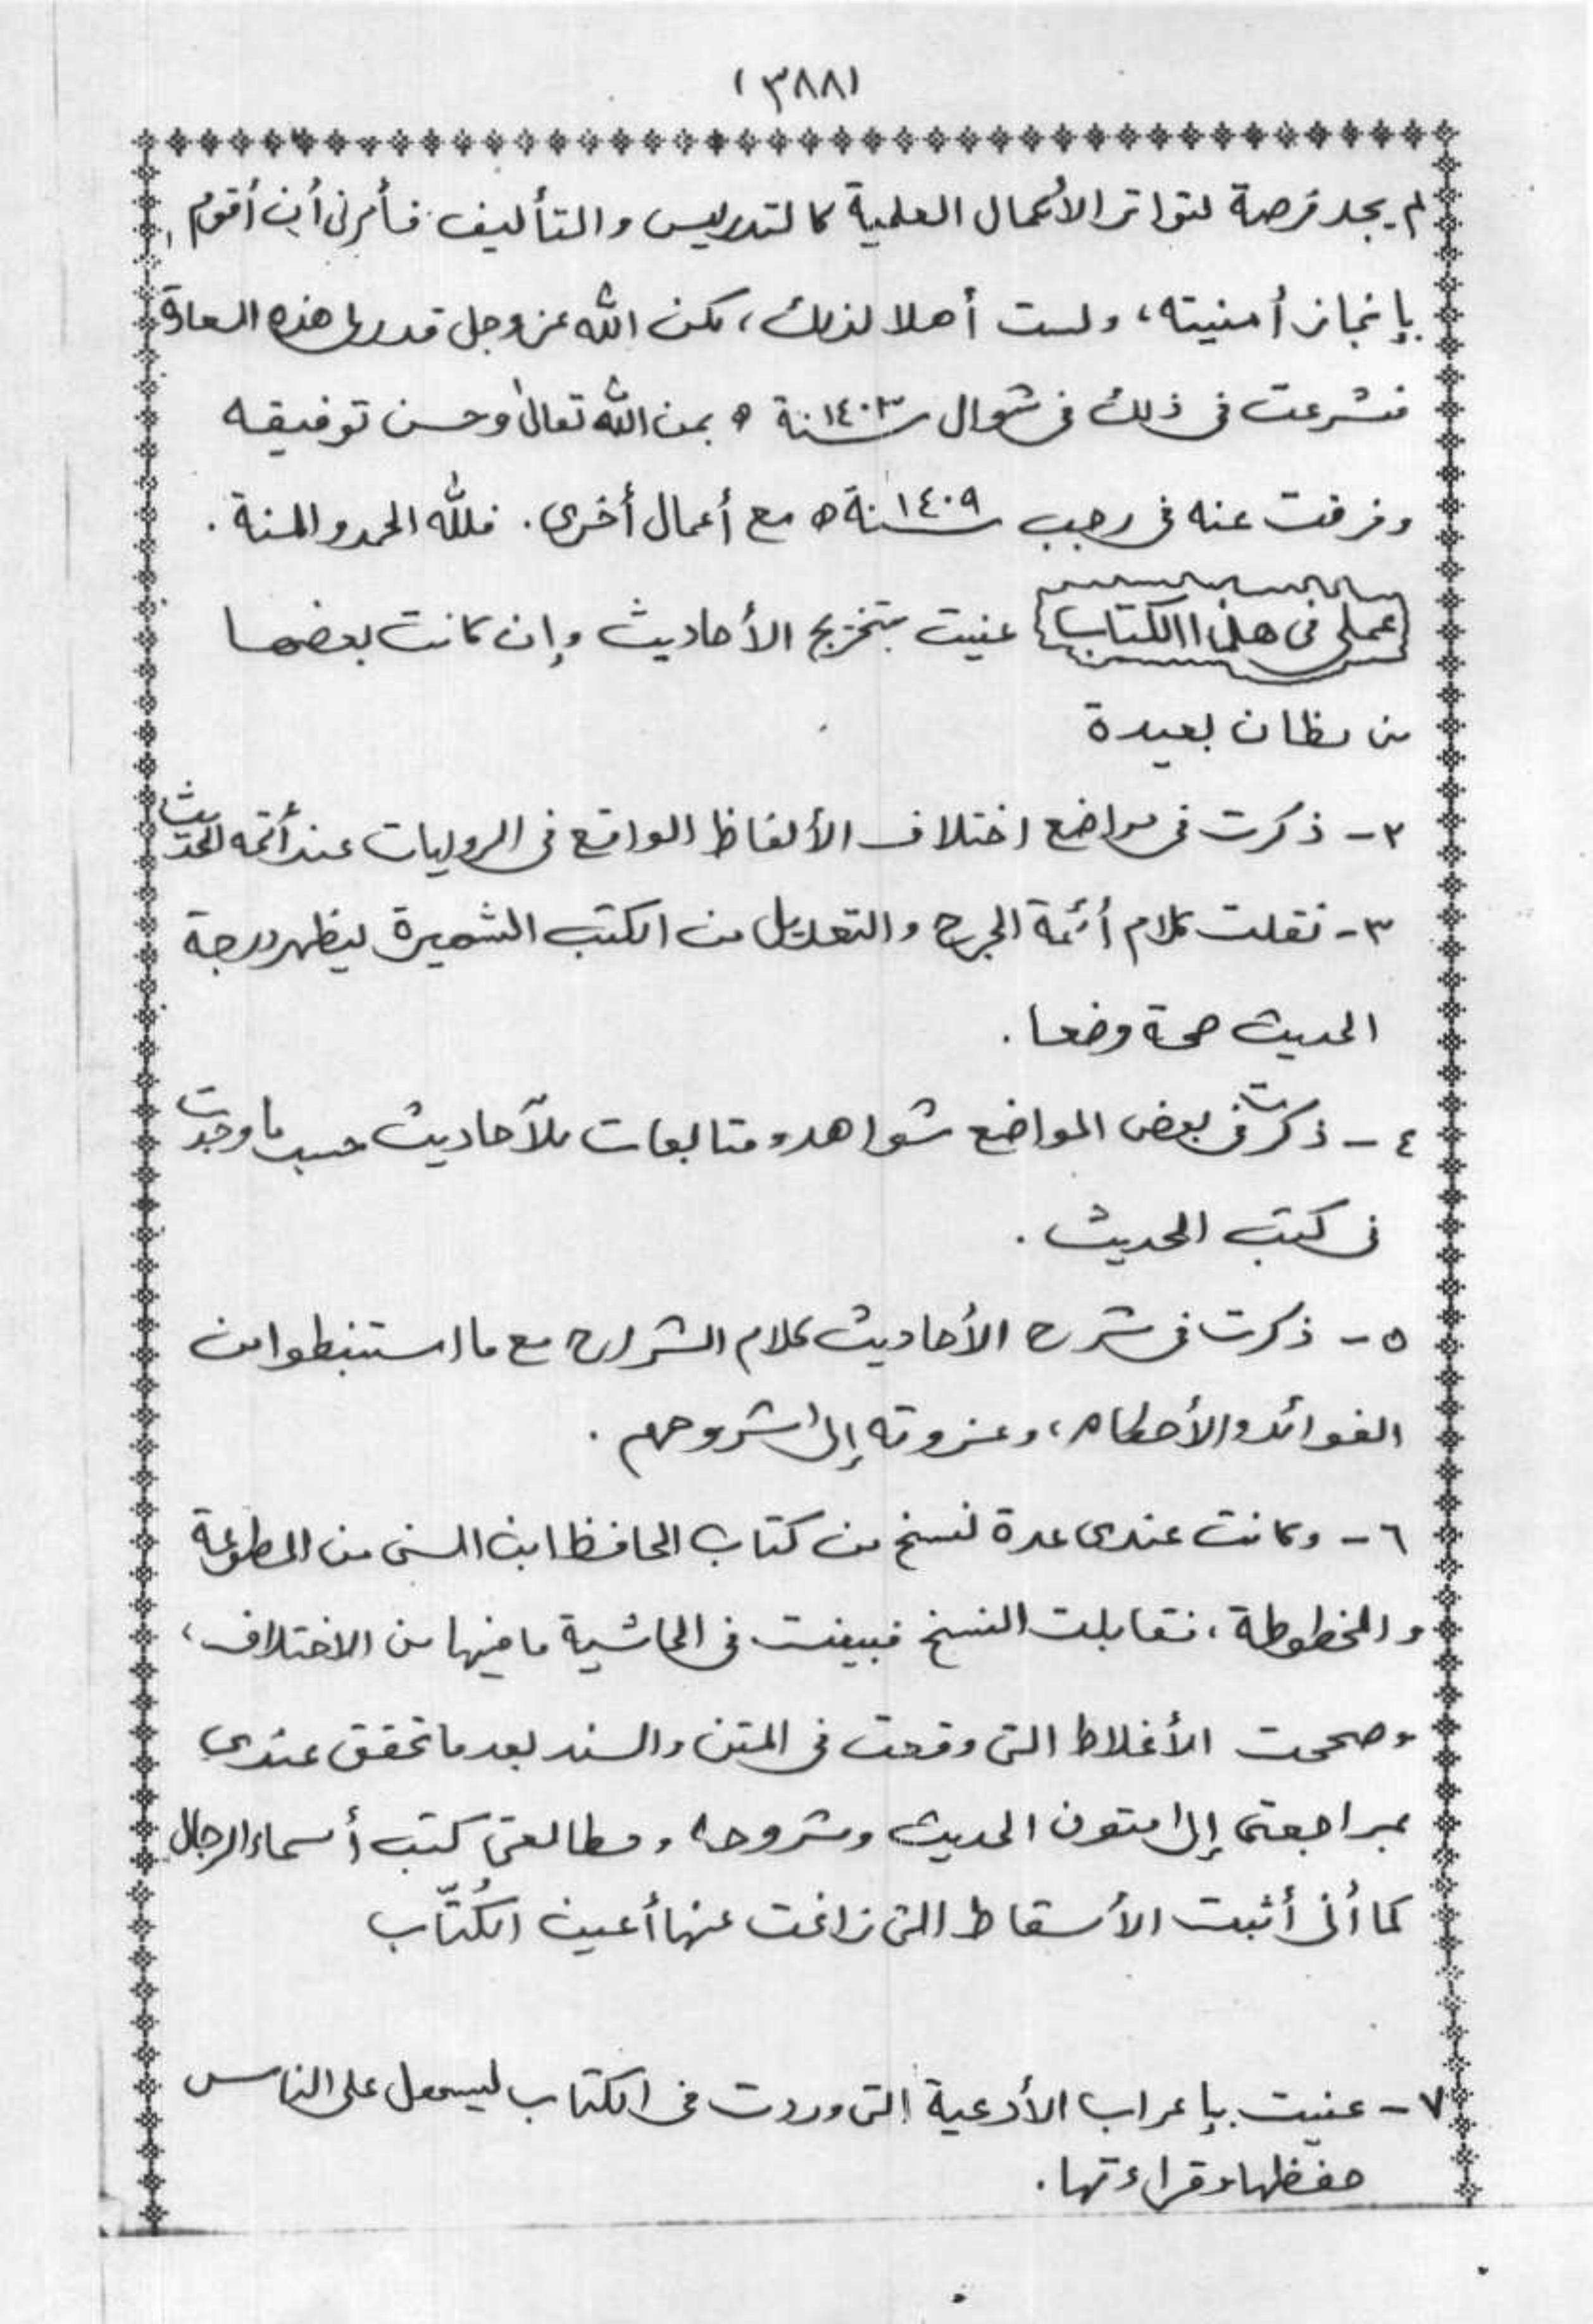 (٣٨٨)
لم يجد فرصة لتواتر الأعمال العلمية كالتدريس والتأليف فأمرنى أن أقوم
بإنجاز أمنيته، ولست أهلا لذلك، لكن الله عز وجل قدر لى هذه السعادة
فشرعت فى ذلك فى شوال سنة ١٤٠٣ ه بمن الله تعالى وحسن توفيقه
وفرقت عنه فى رجب سنة ١٤٠٩ ه مع أعمال أخرى. فلله الحمد والمنة.
عملى فى هذا الكتاب عنيت بتخريج الأحاديث وإن كانت بعضها
من مظان بعيدة
٢- ذكرت فى مواضع اختلاف الألفاظ الواقع فى الروايات عند أئمه الحديث
٣- نقلت كلام أئمة الجرح والتعديل من الكتب الشهيرة ليظهر درجة
الحديث صحة وضعا.
٤- ذكرت فى بعض المواضع شواهد ومتابعات للأحاديث حسب ما وجدت
فى كتب الحديث.
٥- ذكرت فى شرح الأحاديث كلام الشراح مع ما استنبطوا من
الفوائد والأحكام، وعزوته إلى شروحهم.
٦- وكانت عندى عدة نسخ من كتاب الحافظ ابن السنى من المطبوعة
والمخطوطة، فتقابلت النسخ فبينت فى الحاشية ما فيها من الاختلاف،
وصححت الأغلاط التى وقعت فى المتن والسند بعد ما تحقق عندى
بمراجعتى إلى متون الحديث وشروحه ومطالعتى كتب أسماء الرجال
كما أنى أثبت الأسقاط التى زاغت عنها أعين الكُتّاب
٧- عنيت بإعراب الأدعية التى وردت فى الكتاب ليسهل على الناس
حفظها وقراءتها.